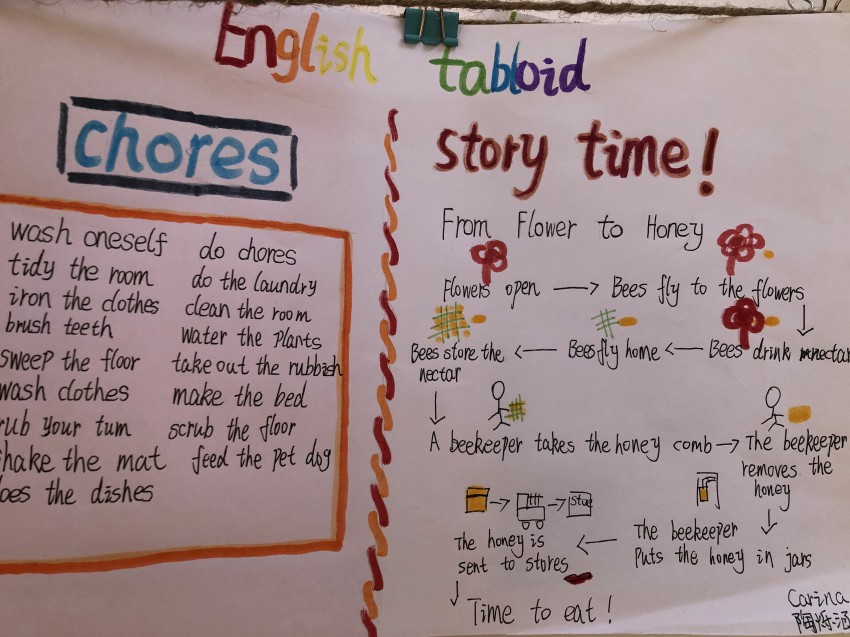 English tabloid
chores
wash oneself
tidy the room
iron the clothes
brush teeth
sweep the floor
wash clothes
rub your tum
hake the mat
oes the dishes
do chores
do the laundry
clean the room
water the plants
take out the rubbish
make the bed
scrub the floor
feed the pet dog
story time!
From Flower to Honey
Flowers open → Bees fly to the flowers
Bees drink nectar
Bees fly home
Bees store the
nectar
A beekeeper takes the honey comb → The beekeeper
removes the
honey
The beekeeper
puts the honey in jars
Star
The honey is
sent to stores
Time to eat!
Carina